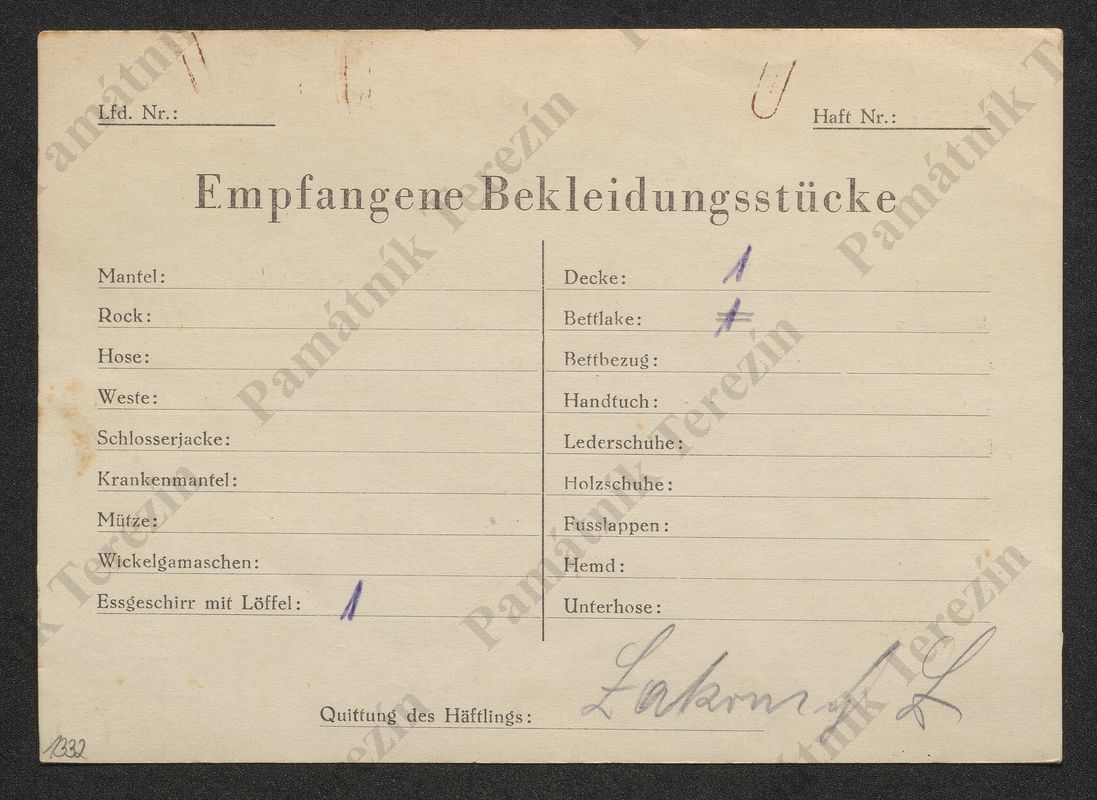 Lfd. Nr.:
Haft Nr.:
Empfangene Bekleidungsstücke
Mantel:
Rock:
Hose:
Weste:
Schlosserjacke:
Krankenmantel:
Mütze:
Wickelgamaschen:
Essgeschirr mit Löffel: 1
Decke: 1
Bettlake: 1
Bettbezug:
Handtuch:
Lederschuhe:
Holzschuhe:
Fusslappen:
Hemd:
Unterhose:
Quittung des Häftlings:
1332
Památník Terezín